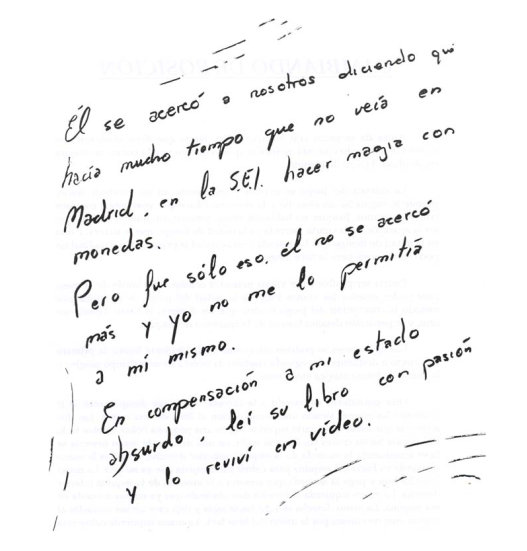 Él se acercó a nosotros diciendo que
hacía mucho tiempo que no veía en
Madrid, en la S.E.I. hacer magia con
monedas.
Pero fue sólo eso, él no se acercó
más y yo no me lo permitía
a mí mismo.
En compensación a mi estado
absurdo, leí su libro con pasión
y lo reviví en vídeo.